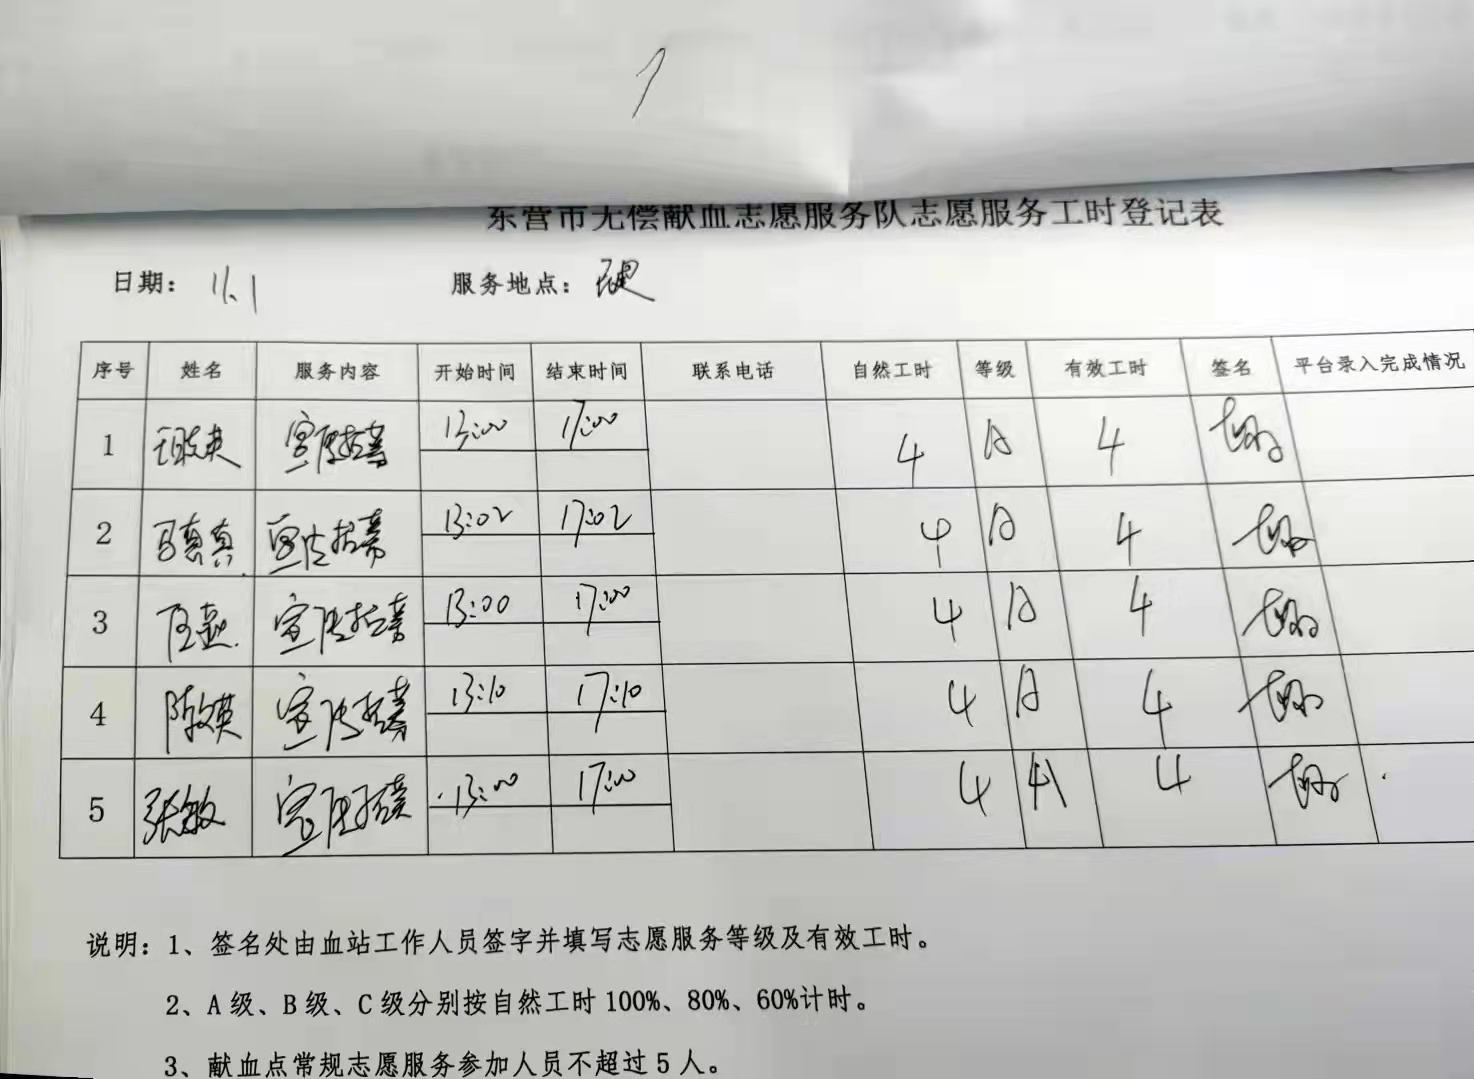 东营市无偿献血志愿服务队志愿服务工时登记表
日期： 11.1 服务地点：
序号 姓名 服务内容 开始时间 结束时间 联系电话 自然工时 等级 有效工时 签名 平台录入完成情况
1 宣传招募 13:00 17:00 4 A 4
2 马真真 宣传招募 13:02 17:02 4 A 4
3 宣传招募 13:00 17:00 4 A 4
4 陈文英 宣传招募 13:10 17:10 4 A 4
5 张敏 宣传招募 13:00 17:00 4 A 4
说明：1、签名处由血站工作人员签字并填写志愿服务等级及有效工时。
2、A 级、B 级、C 级分别按自然工时 100%、80%、60%计时。
3、献血点常规志愿服务参加人员不超过 5 人。